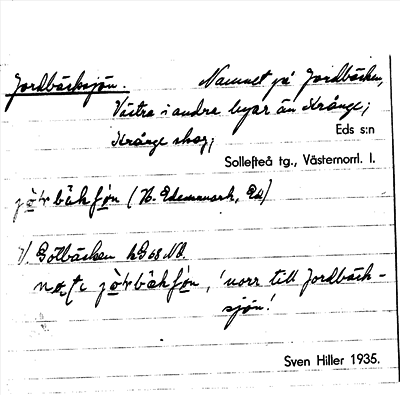 Jordbäcksjön. Namnet på Jordbäcken,
Västra i andra byar än Krånge;
Krånge skog;
Eds s:n
Sollefteå tg., Västernorrl. l.
jò̠rbäkʃò̠n (N. Edemmark, Ed)
V. Götbäcken hS 68 NO.
no̠ʈi jò̠rbäkʃò̠n, 'norr till Jordbäck-
sjön'.
Sven Hiller 1935.